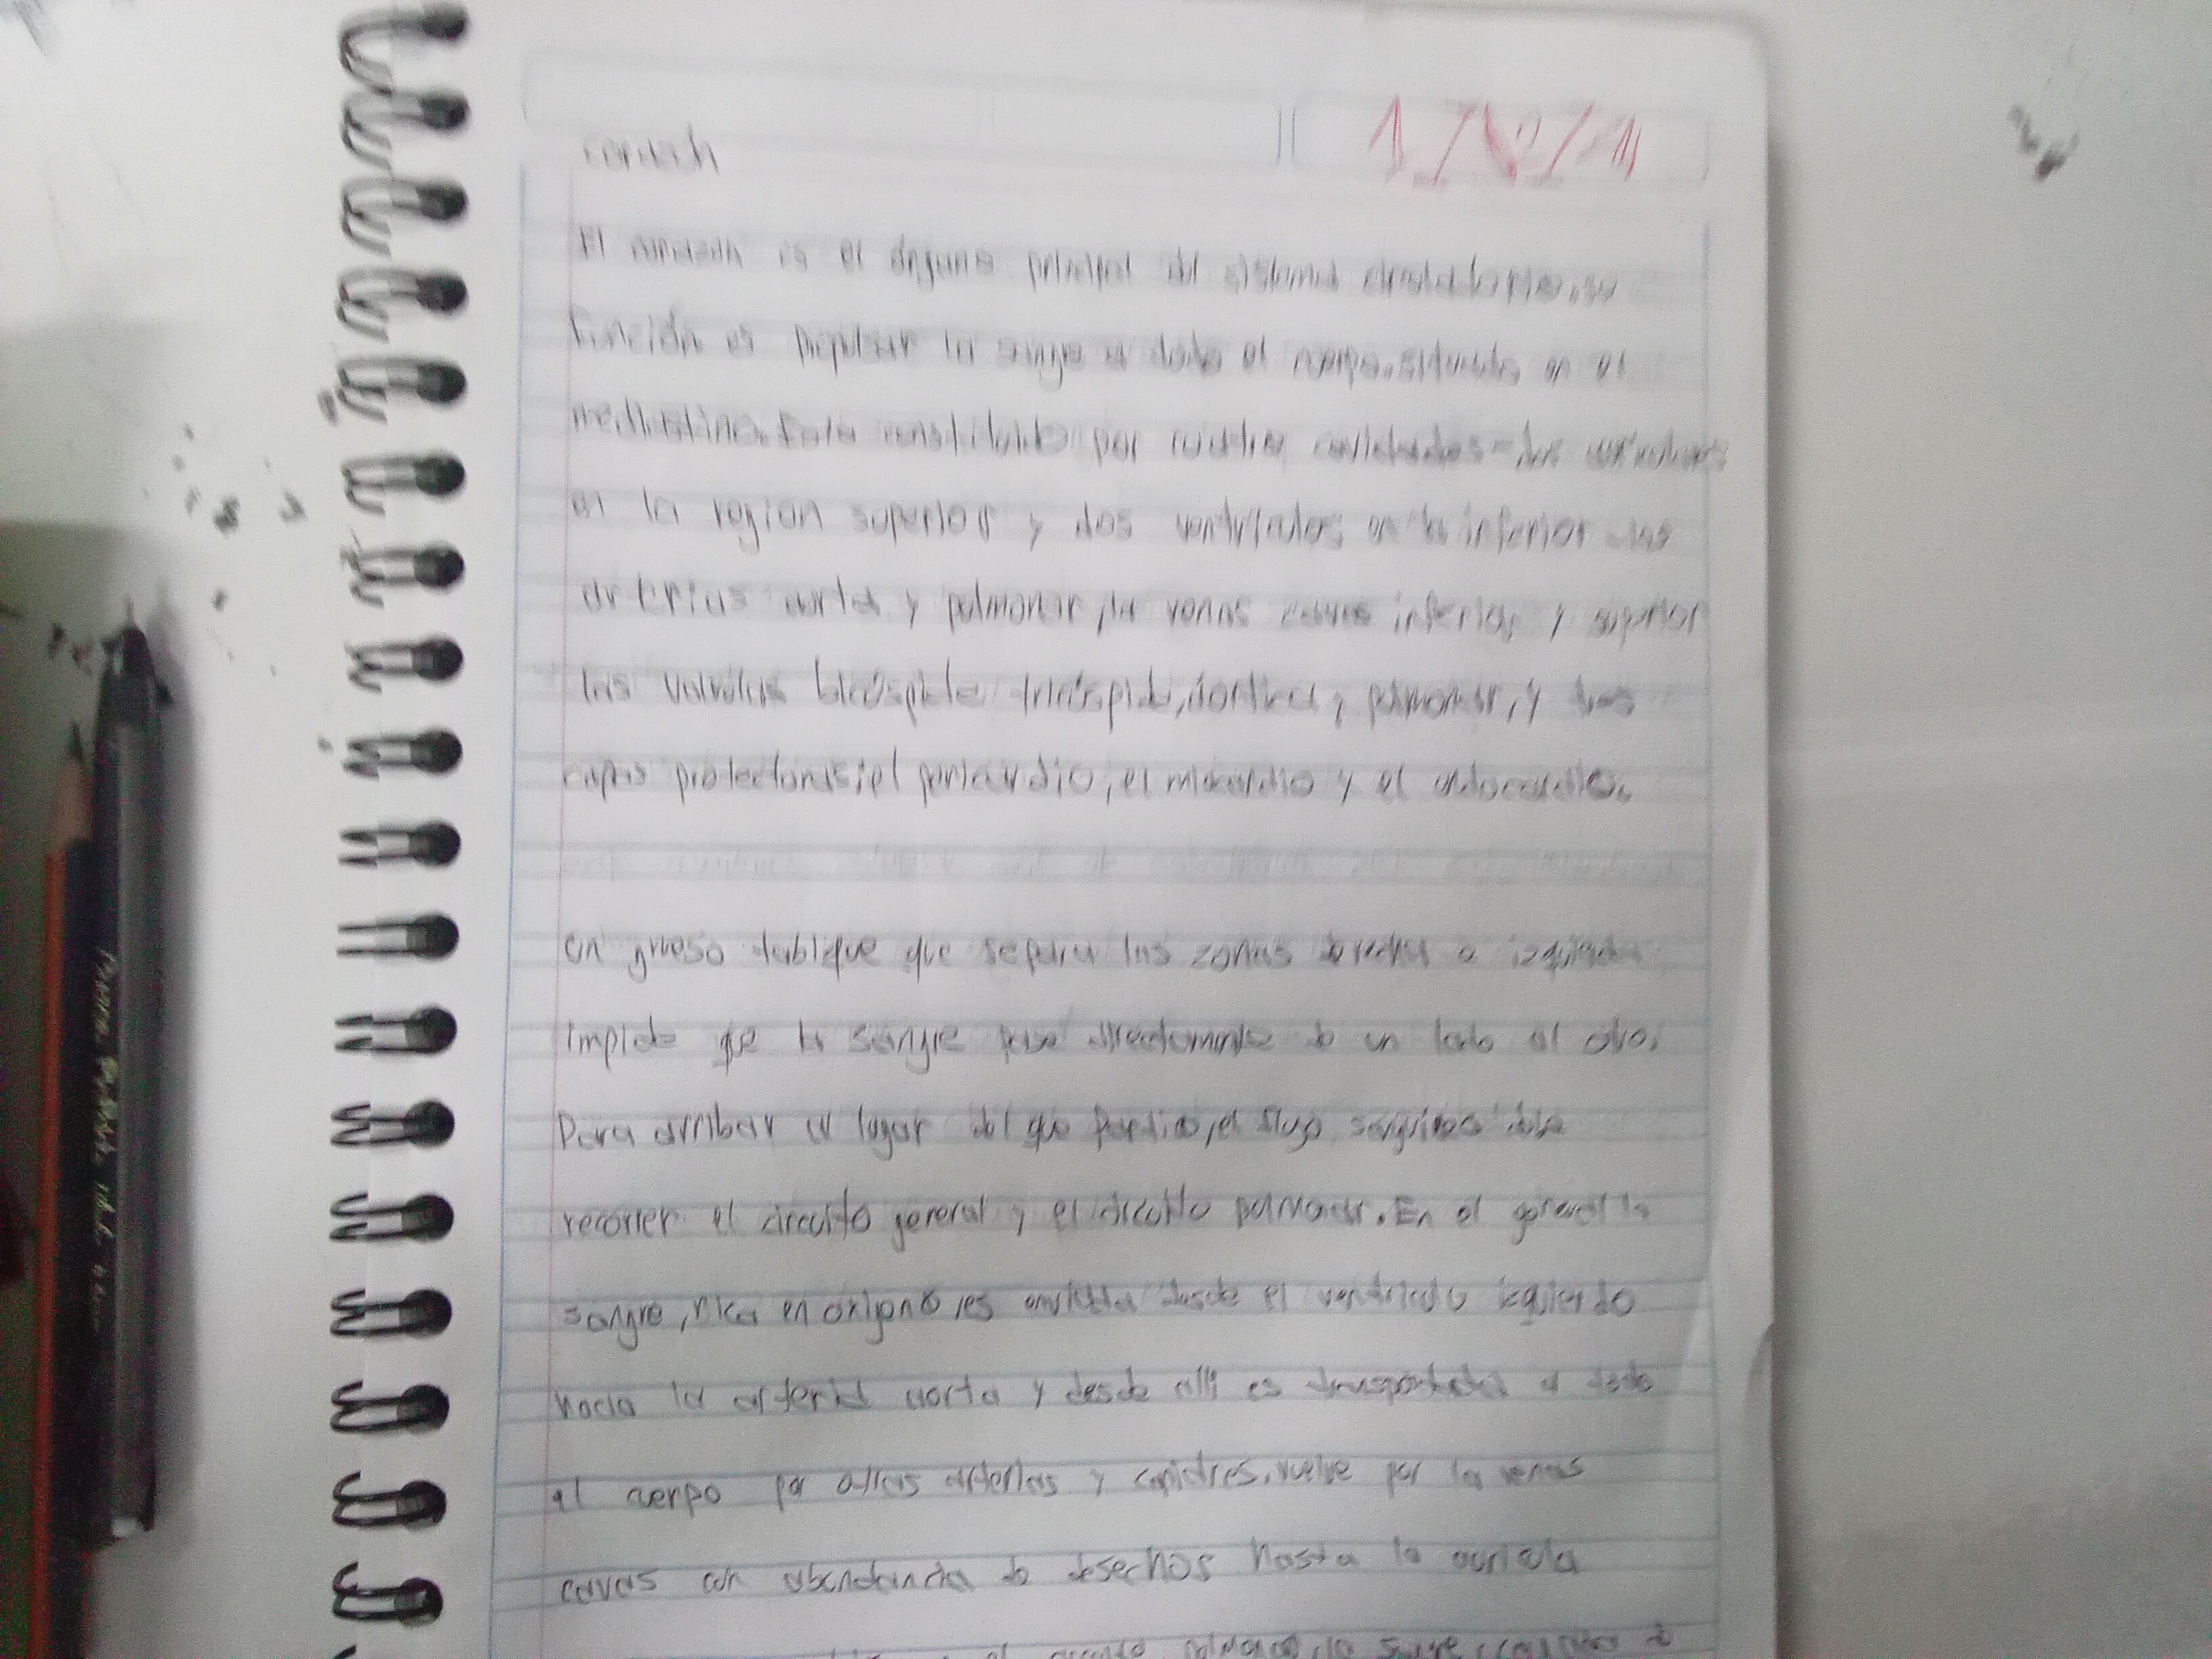 corazón
El corazón es el órgano principal del sistema circulatorio, su
función es propulsar la sangre a todo el cuerpo, situado en el
mediastino. Esta constituido por cuatro cavidades - dos auriculas
en la region superior y dos ventriculos en la inferior - las
arterias aorta y pulmonar, la venas cavas inferior y superior
las valvulas bicúspide tricúspide, aortica y pulmonar, y tres
capas protectoras; el pericardio, el miocardio y el endocardio.
un grueso tabique que separa las zonas derecha e izquierda
impide que la sangre pase directamente de un lado al otro.
Para arribar al lugar del que partio, el flujo sanguineo debe
recorrer el circuito general y el circuito pulmonar. En el general la
sangre, rica en oxigeno, es emitida desde el ventriculo izquierdo
hacia la arteria aorta y desde alli es transportada a todo
el cuerpo por otras arterias y capilares. vuelve por la venas
cavas con abundancia de desechos hasta la auricula
el circuito pulmonar, la sangre